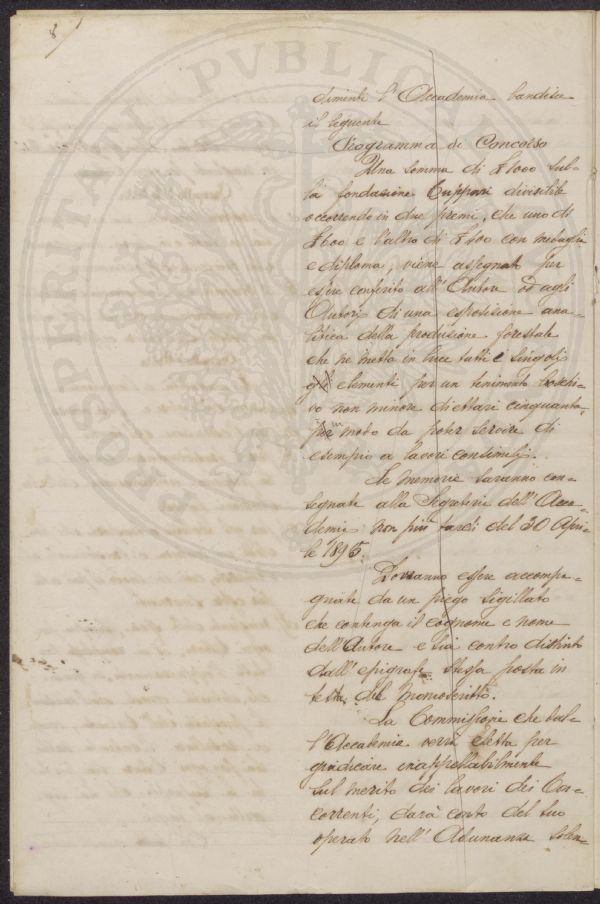 8
dimenti l'Accademia bandisce
il seguente
Programma di Concorso
Una somma di £1000 sul-
la fondazione Cuppari divisibile
occorrendo in due premi, che uno di
£600 e l'altro di £400 con medaglia
e diploma, viene assegnata per
essere conferita all'Autore od agli
Autori di una esposizione ana-
litica della produzione forestale
che ne metta in luce tutti e singoli
gli elementi per un tenimento boschi-
vo non minore di ettari cinquanta,
in modo da poter servire di
esempio a lavori consimili.
Le memorie saranno con-
segnate alla Segreteria dell'Acca-
demia non più tardi del 30 Apri-
le 1895.
Dovranno essere accompa-
gnate da un piego sigillato
che contenga il cognome e nome
dell'Autore e sia contro distinto
dall'epigrafe stessa posta in
testa del manoscritto.
La Commissione che dal-
l'Accademia verrà eletta per
giudicare inappellabilmente
sul merito dei lavori dei Con-
correnti, darà conto del suo
operato nell'Adunanza solen-
PUBLICAE
PROSPERITATI